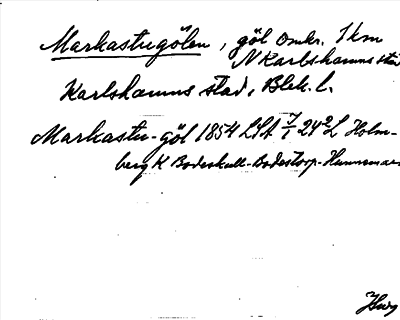 Markastugölen, göl omkr. 1 km
N Karlshamns stad
Karlshamns stad, Blek. l.
Markastu-göl 1854 LSA 7/1 24² L Holm-
berg K Bodeskull-Bodestorp-Hunnemara